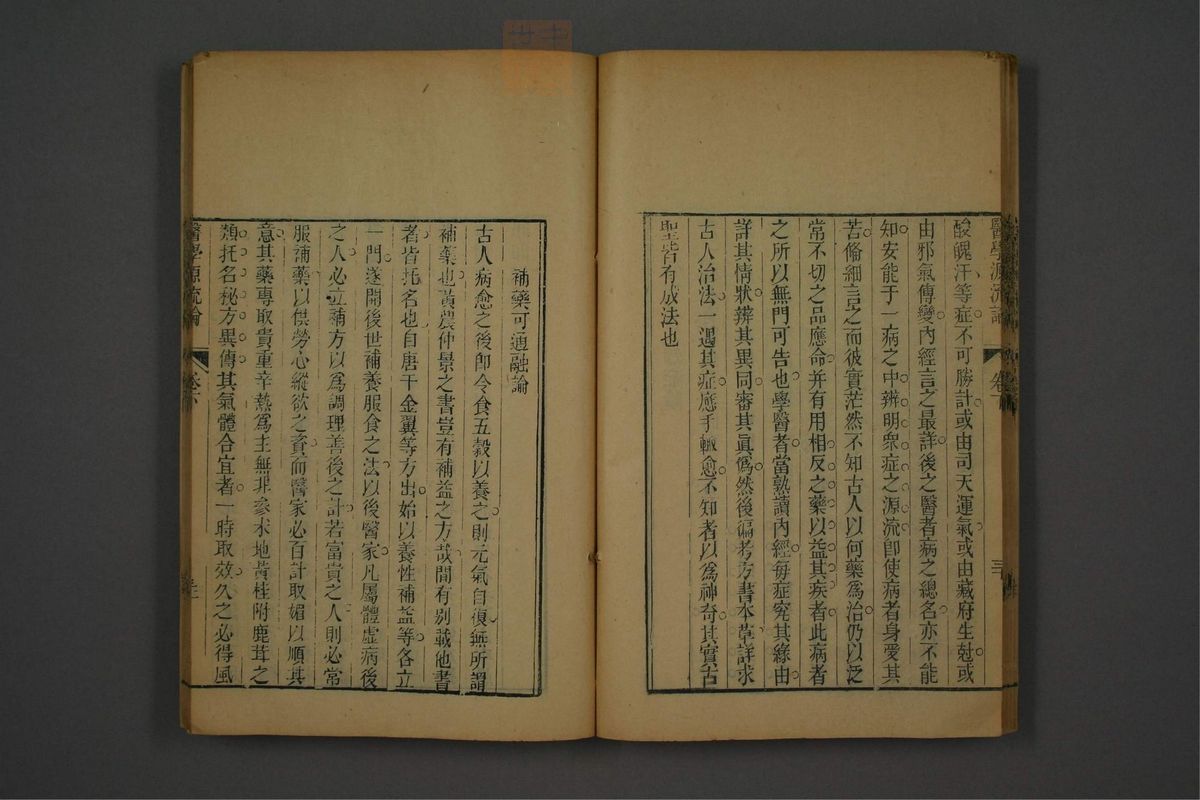 醫學源流論 卷下
酸魄汗等症不可勝計或由司天運氣或由藏府生尅或
由邪氣傳變內經言之最詳後之醫者病之總名亦不能
知安能于一病之中辨明衆症之源流卽使病者身受其
苦備細言之而彼實茫然不知古人以何藥爲治仍以泛
常不切之品應命并有用相反之藥以益其疾者此病者
之所以無門可告也學醫者當熟讀內經每症究其緣由
詳其情狀辨其異同審其眞僞然後徧考方書本草詳求
古人治法一遇其症應手輒愈不知者以爲神奇其實古
聖皆有成法也
補藥可通融論
古人病愈之後卽令食五穀以養之則元氣自復無所謂
補藥也黃農仲景之書豈有補益之方哉間有別載他書
者皆托名也自唐千金翼等方出始以養性補益等各立
一門遂開後世補養服食之法以後醫家凡屬體虛病後
之人必立補方以爲調理善後之計若富貴之人則必常
服補藥以供勞心縱欲之資而醫家必百計取媚以順其
意其藥專取貴重辛熱爲主無非參朮地黃桂附鹿茸之
類托名秘方異傳其氣體合宜者一時取效久之必得風
醫學源流論 卷下